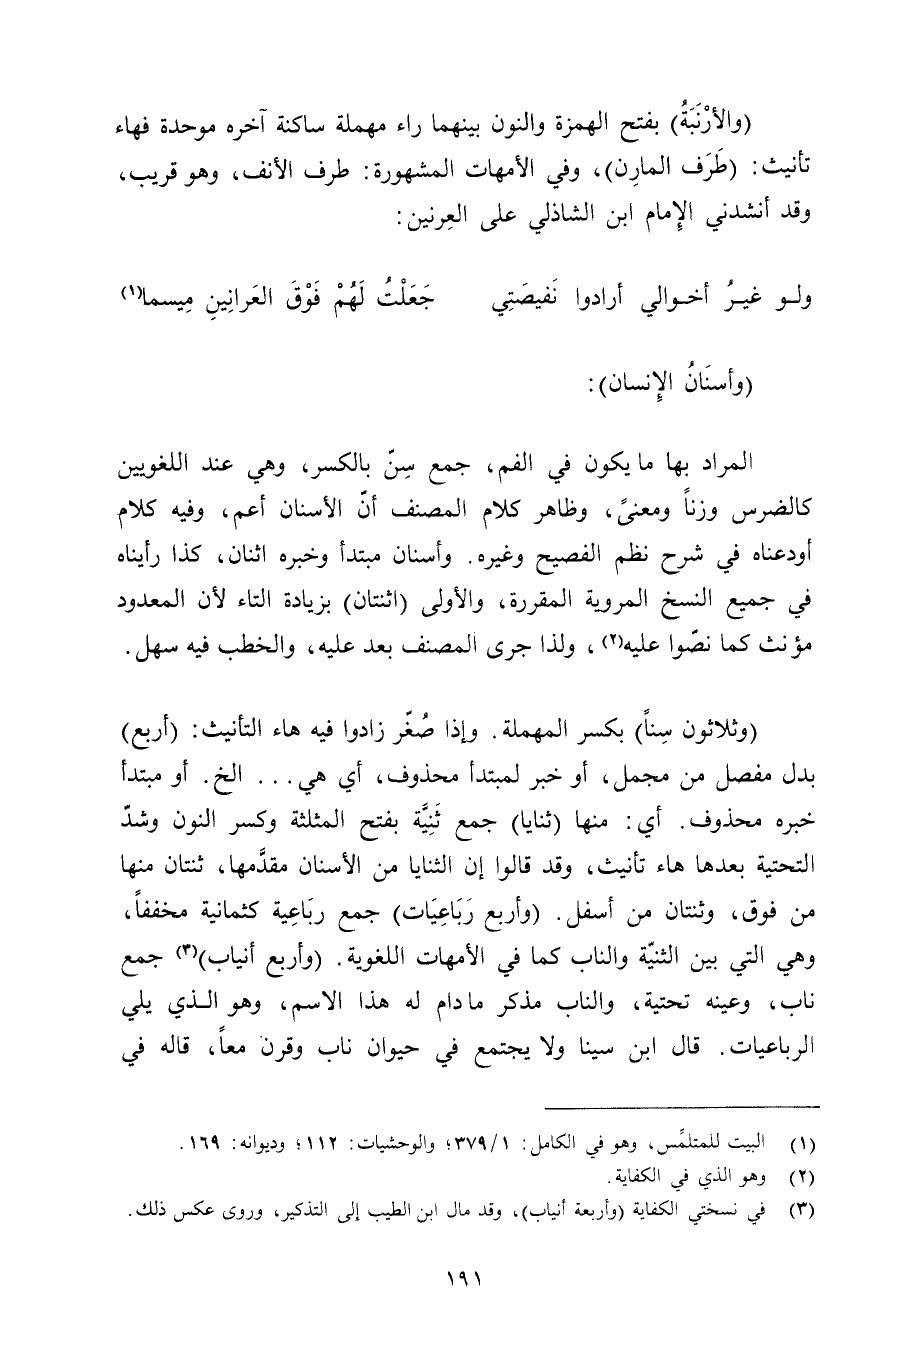 (والأَرْنَبَةُ) بفتح الهمزة والنون بينهما راء مهملة ساكنة آخره موحدة فهاء
تأنيث: (طَرَف المارِن)، وفي الأمهات المشهورة: طرف الأنف، وهو قريب،
وقد أنشدني الإمام ابن الشاذلي على العِرنين:
ولو غيرُ أخوالي أرادوا نَفيصَتِي جَعَلْتُ لَهُمْ فَوْقَ العَرانِينِ مِيسما(١)
(وأسنَانُ الإنسان):
المراد بها ما يكون في الفم، جمع سِنّ بالكسر، وهي عند اللغويين
كالضرس وزناً ومعنىً، وظاهر كلام المصنف أنّ الأسنان أعم، وفيه كلام
أودعناه في شرح نظم الفصيح وغيره. وأسنان مبتدأ وخبره اثنان، كذا رأيناه
في جميع النسخ المروية المقررة، والأولى (اثنتان) بزيادة التاء لأن المعدود
مؤنث كما نصّوا عليه(٢)، ولذا جرى المصنف بعد عليه، والخطب فيه سهل.
(وثلاثون سِناً) بكسر المهملة. وإذا صُغّر زادوا فيه هاء التأنيث: (أربع)
بدل مفصل من مجمل، أو خبر لمبتدأ محذوف، أي هي... الخ. أو مبتدأ
خبره محذوف. أي: منها (ثنايا) جمع ثَنِيَّة بفتح المثلثة وكسر النون وشدّ
التحتية بعدها هاء تأنيث، وقد قالوا إن الثنايا من الأسنان مقدَّمها، ثنتان منها
من فوق، وثنتان من أسفل. (وأربع رَبَاعِيَات) جمع ربَاعِية كثمانية مخففاً،
وهي التي بين الثنيّة والناب كما في الأمهات اللغوية. (وأربع أنياب)(٣) جمع
ناب، وعينه تحتية، والناب مذكر ما دام له هذا الاسم، وهو الذي يلي
الرباعيات. قال ابن سينا ولا يجتمع في حيوان ناب وقرن معاً، قاله في
(١) البيت للمتلمِّس، وهو في الكامل: ٣٧٩/١؛ والوحشيات: ١١٢؛ وديوانه: ١٦٩.
(٢) وهو الذي في الكفاية.
(٣) في نسختي الكفاية (وأربعة أنياب)، وقد مال ابن الطيب إلى التذكير، وروى عكس ذلك.
١٩١